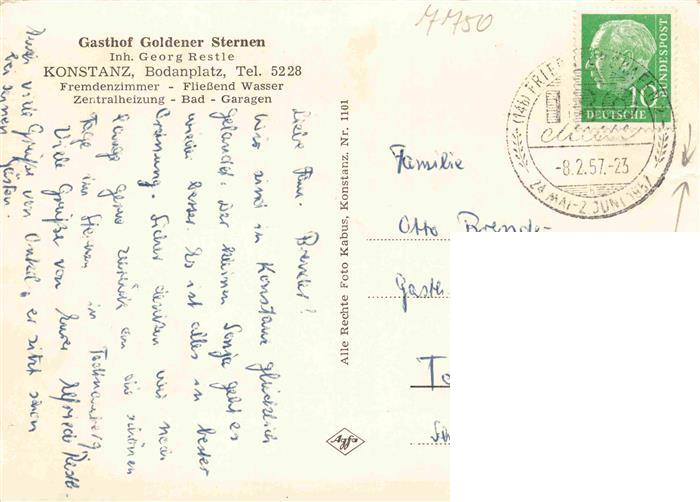 7750
Gasthof Goldener Sternen
Inh. Georg Restle
KONSTANZ, Bodanplatz, Tel. 5228
Fremdenzimmer - Fließend Wasser
Zentralheizung - Bad - Garagen
Liebe Fam. Brender!
Wir sind in Konstanz glücklich
gelandet. Der kleinen Sonja geht es
wieder besser. Es ist alles in bester
Ordnung. Sicher denken wir noch
lange gerne zurück an die schönen
Tage im Sternen in Todtnauberg
Viele Grüße von Eurer Elfriede Restle.
Auch viele Grüße von Onkel, er sitzt schon
bei seinen Gästen.
Alle Rechte Foto Kabus, Konstanz, Nr. 1101
Agfa
Familie
Otto Brende
Gasth
To
DEUTSCHE
BUNDESPOST
10
(14b) FRIED
-8.2.57.-23
24 MAI-2 JUNI 1957